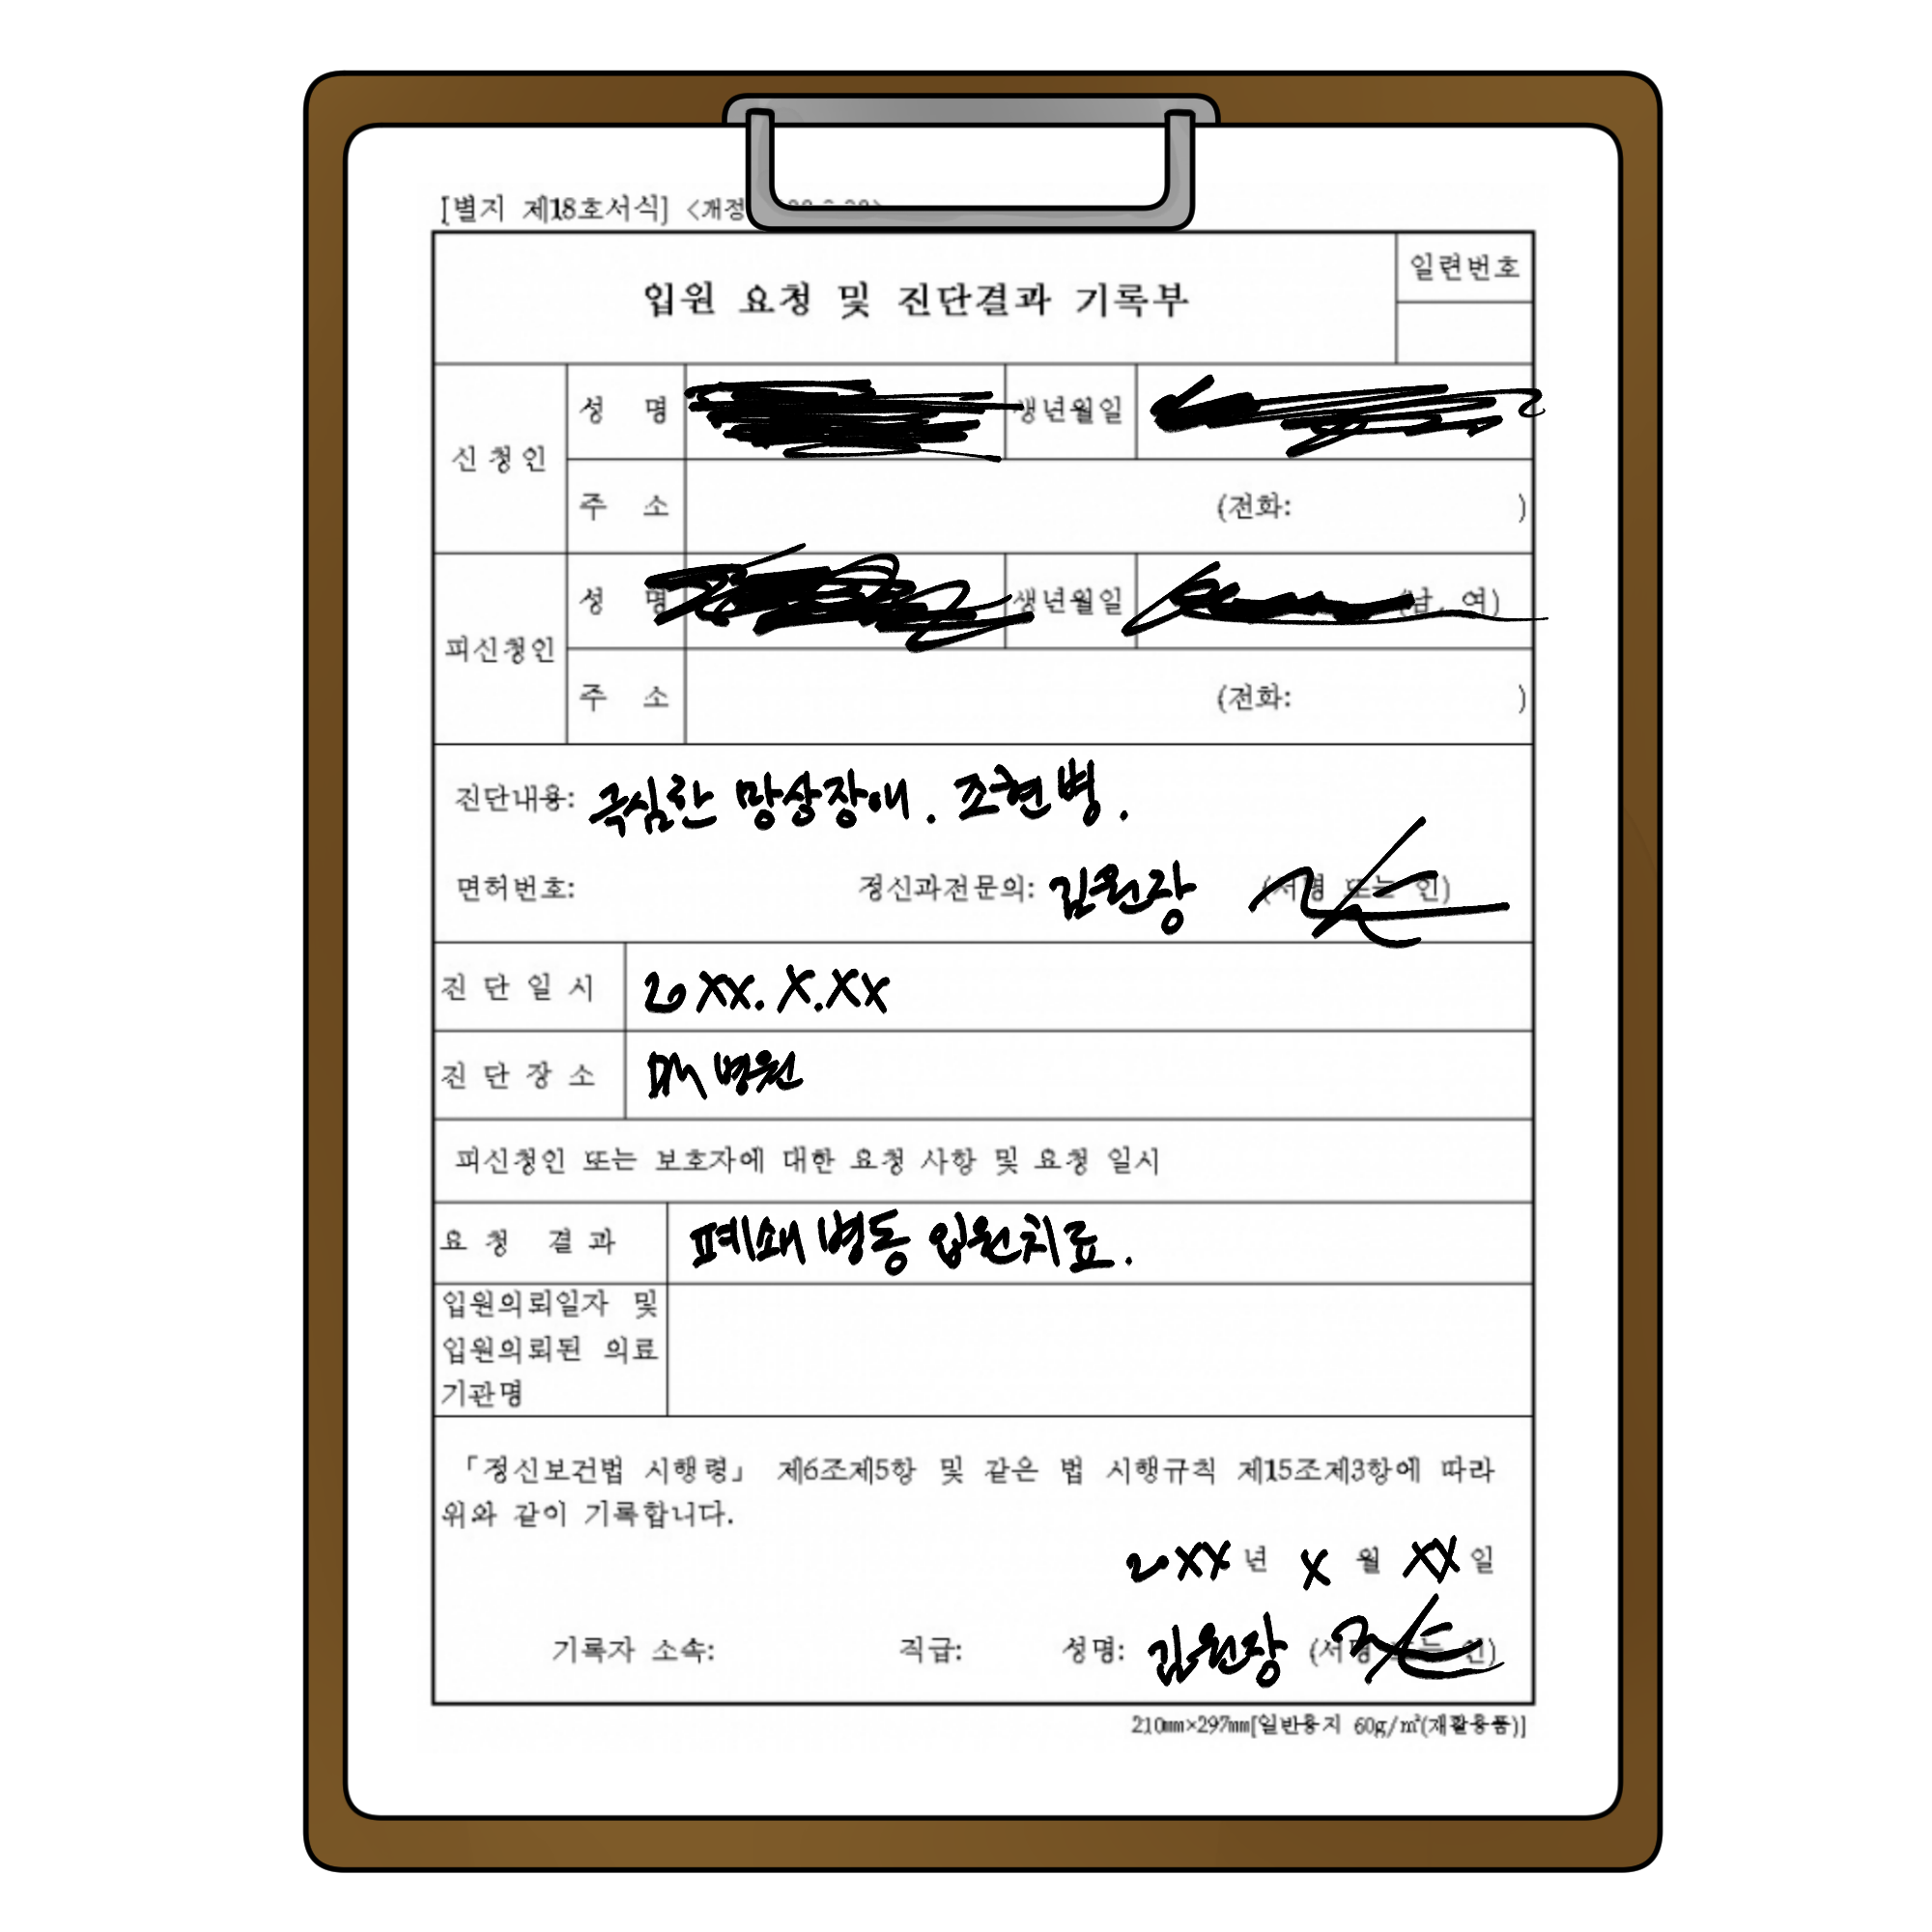 [별지 제18호서식] <개정
입원 요청 및 진단결과 기록부
일련번호
신청인
성 명
생년월일
주 소
(전화: )
피신청인
성 명
생년월일
(남, 여)
주 소
(전화: )
진단내용: 극심한 망상장애. 조현병.
면허번호: 정신과전문의: 김원장 (서명 또는 인)
진단일시 20XX. X. XX
진단장소 DM 병원
피신청인 또는 보호자에 대한 요청 사항 및 요청 일시
요청 결과 폐쇄병동 입원치료.
입원의뢰일자 및
입원의뢰된 의료
기관명
「정신보건법 시행령」 제6조제5항 및 같은 법 시행규칙 제15조제3항에 따라
위와 같이 기록합니다.
20XX년 X월 XX일
기록자 소속: 직급: 성명: 김원장 (서명 또는 인)
210㎜×297㎜[일반용지 60g/㎡(재활용품)]